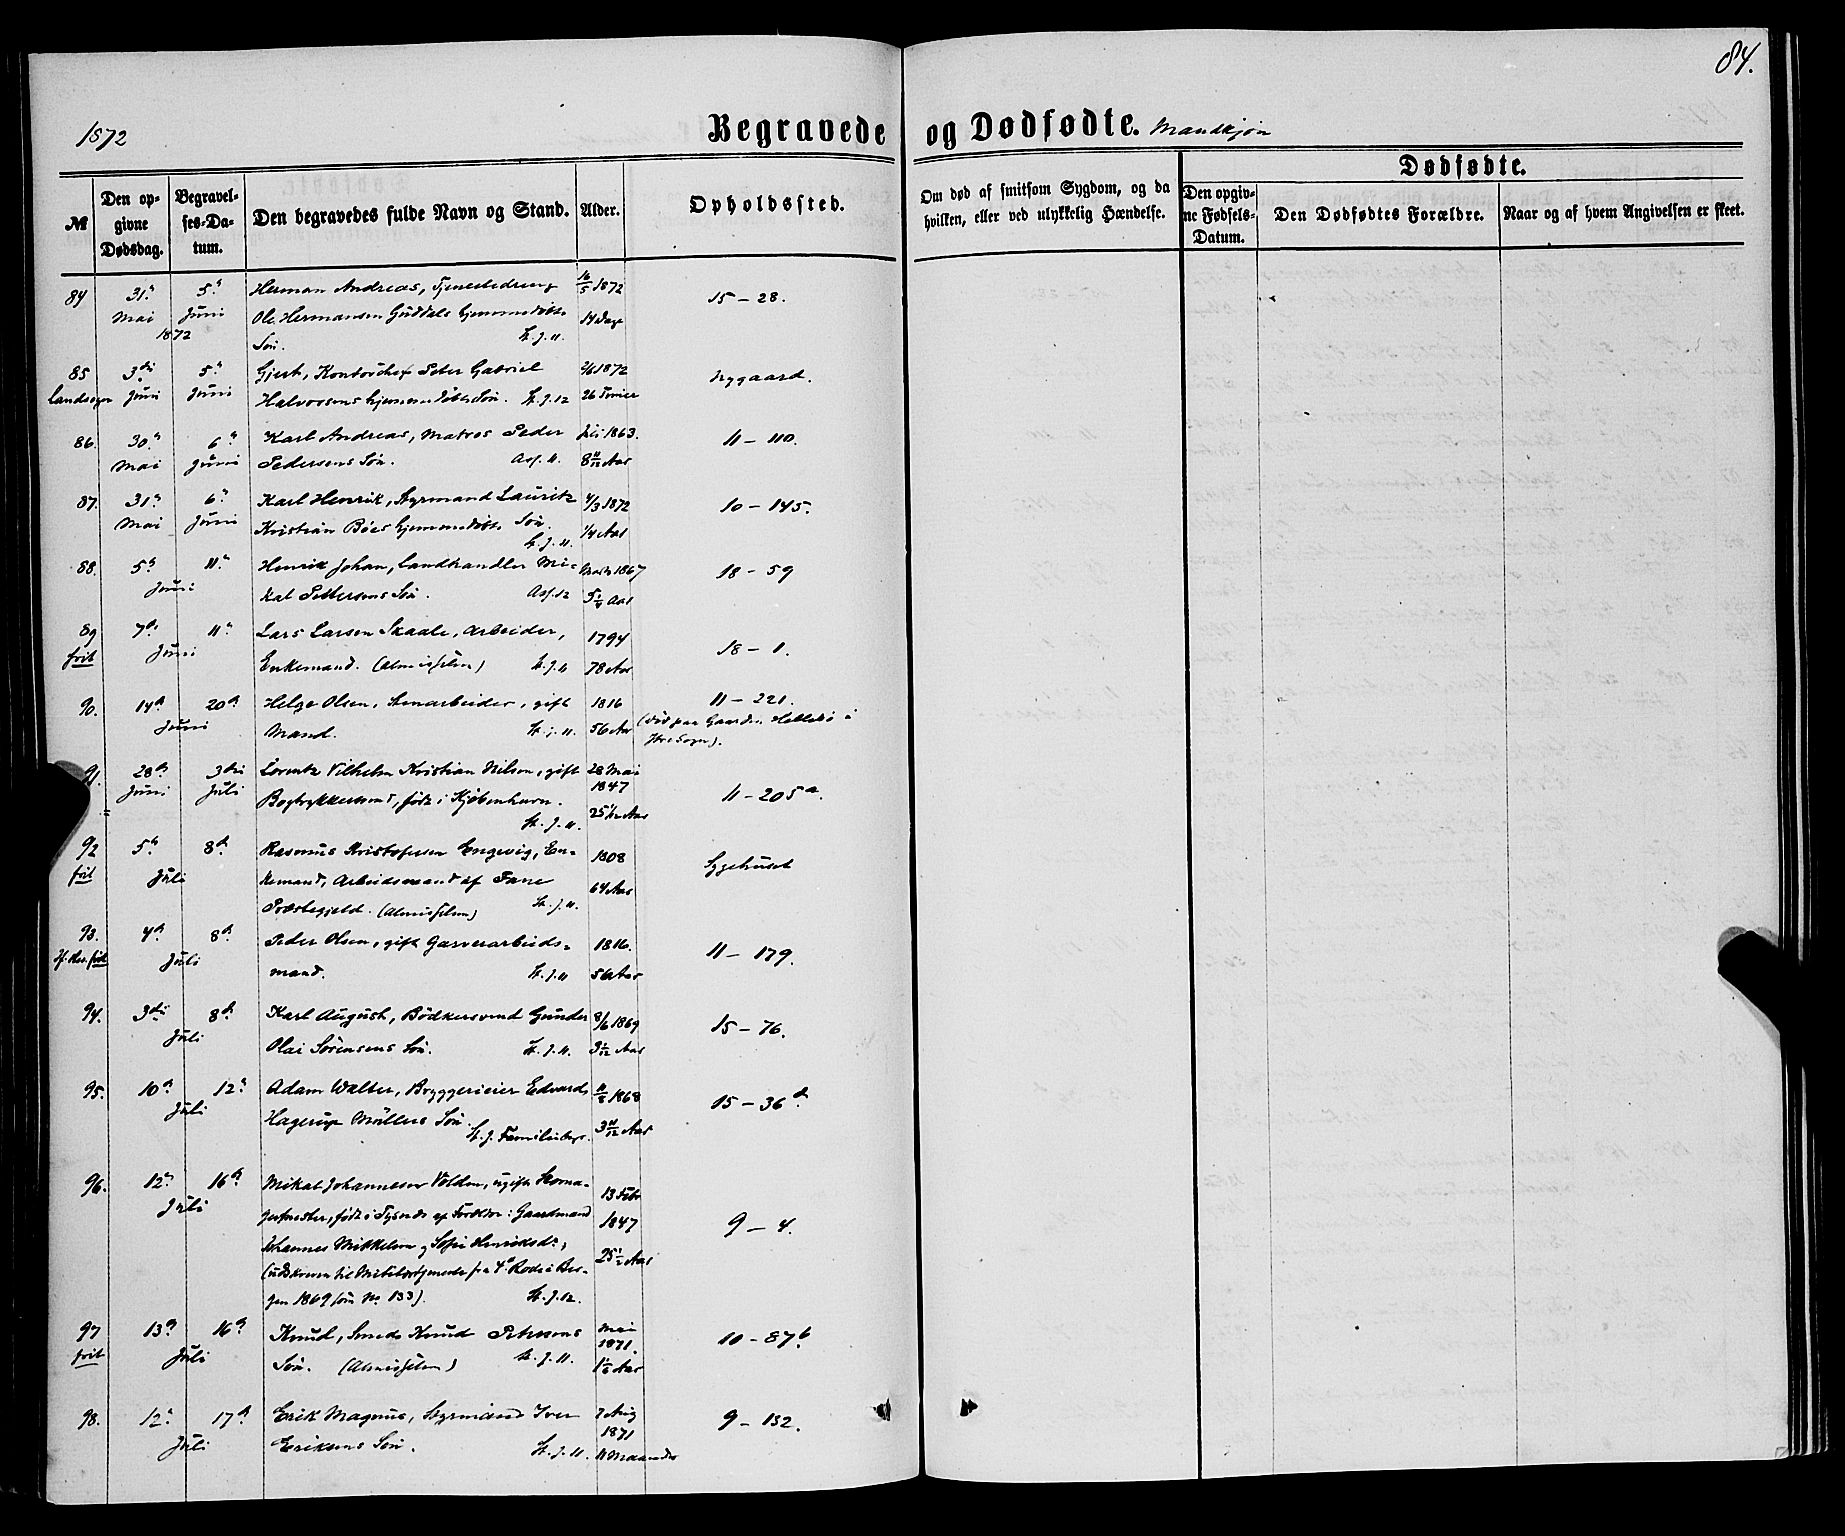 84.
1872
Begravede og Dødfødte. Mandkjøn
№
Den opgivne Dødsdag.
Begravelses-Datum.
Den begravedes fulde Navn og Stand.
Alder.
Opholdssted.
Om død af smitsom Sygdom, og da hvilken, eller ved ulykkelig Hændelse.
Dødfødte.
Den opgivne Fødsels-Datum.
Den Dødfødtes Forældre.
Naar og af hvem Angivelsen er skeet.
84 31te 5te Herman Andreas, Tjenestedreng 16/5 1872 15 – 28.
Mai Juni Ole Hermansen Guddals hjemmedøbte 14 Dage
1872 Søn. St. J. 11.
85 3die 5te Gjert, Kontorchef Peter Gabriel 2/6 1872 Nygaard.
Landsogn Juni Juni Halvorsens hjemmedøbte Søn. St. J. 12 26 Timer
86. 30te 6te Karl Andreas, Matros Peder Juli 1863. 11 – 110.
Mai Juni Pedersens Søn. Ass. 11. 8 11/12 Aar
87. 31te 6te Karl Henrik, Styrmand Lauritz 4/3 1872 10 – 145.
Mai Juni Kristian Böes hjemmedøbte Søn. 1/4 Aar
St. J. 11.
88. 5te 11te Henrik Johan, Landhandler Mi- Marts 1867 18 – 59
Juni kal Pettersens Søn. Ass. 12 5 1/4 Aar
89 7de 11te Lars Larsen Skaale, Arbeider, 1794 18 – 1.
frit Juni Enkemand. (Almisselem) St. J. 11 78 Aar
90. 14de 20de Helge Olsen, Stenarbeider, gift 1816 11 – 221.
Juni Mand. St. J. 11. 56 Aar (død paa Gaarden Hellesö i
Sogn).
91. 28de 3die Lorentz Vilhelm Kristian Nilsen, gift 28 Mai 11 – 205 a.
Juni Juli Bogtrykkersvend, født i Kjöbenhavn. 1847
St. J. 11. 25 1/12 Aar
92 5te 8de Rasmus Kristofersen Engevig, En- 1808 Sygehuset
frit Juli kemand, Arbeidsmand af Fane 64 Aar
Præstegjeld. (Almisselem) St. J. 11.
93. 4de 8de Peder Olsen, gift Garverarbeids- 1816. 11 – 179.
frit Juli mand. St. J. 11 56 Aar
94. 3die 8de Karl August, Bödkersvend Gunder 8/6 1869 15 – 76.
Juli Olai Sörensens Søn. St. J. 11. 3 1/12 Aar
95. 10de 12te Adam Walter, Bryggerieier Edvard 11/8 1868 15 – 36 d.
Juli Hagerup Möllers Søn. 3 11/12 Aar
St. J. Familiebegr.
96. 12te 16de Mikal Johannesen Volden, ugift Skoma- 13 Febr 9 – 4.
Juli germester, født i Tysnes af Forældre: Gaardmand 1847
Johannes Mikkelsen og Sofie Henriksdr, 25 1/2 Aar
(udskreven til Militærtjeneste fra 4de Rode i Ber-
gen 1869 som No 133). St. J. 12.
97 13de 16de Knud, Smed Knud Petersens Mai 10 – 87 b
frit Juli Søn. (Almisselem) St. J. 11. 1871.
1 1/6 Aar
98. 12te 17de Erik Magnus, Styrmand Iver 7 Aug 9 – 132.
Juli Eriksens Søn. St. J. 11. 1871
11 Maaneder